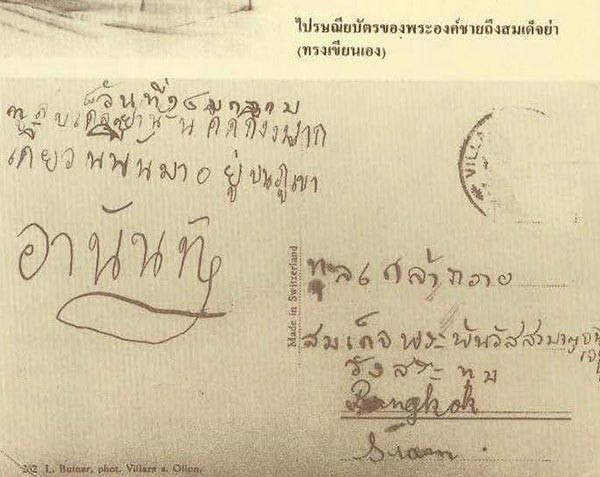 ไปรษณียบัตรของพระองค์ชายถึงสมเด็จย่า
(ทรงเขียนเอง)
วันที่
ย่า นันคิดถึงมาก
เดี๋ยวนี้นันมาอยู่บนภูเขา
อานันท
Made in Switzerland
ทูลเกล้าถวาย
สมเด็จพระพันวัสสา
วังสระ
Bangkok
Siam.
262 L. Butner, phot. Villars s. Ollon.